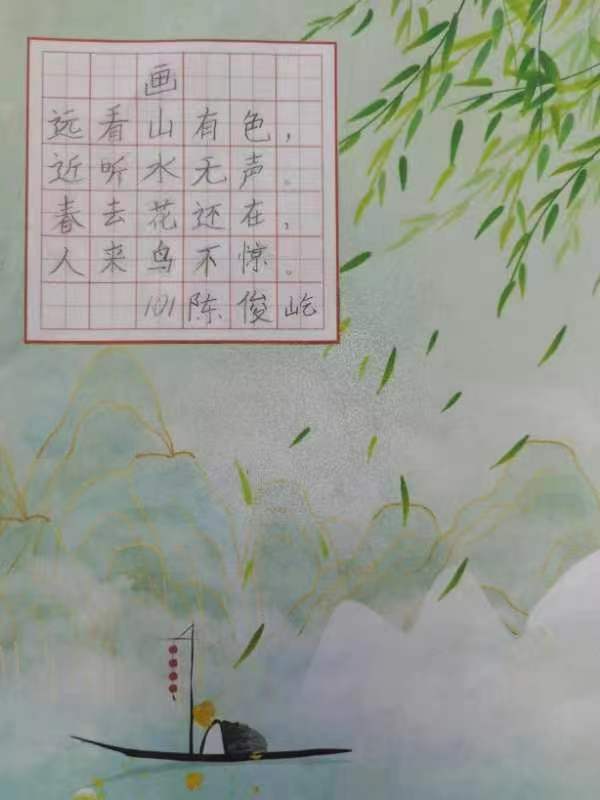 画
远看山有色，
近听水无声。
春去花还在，
人来鸟不惊。
101陈俊屹